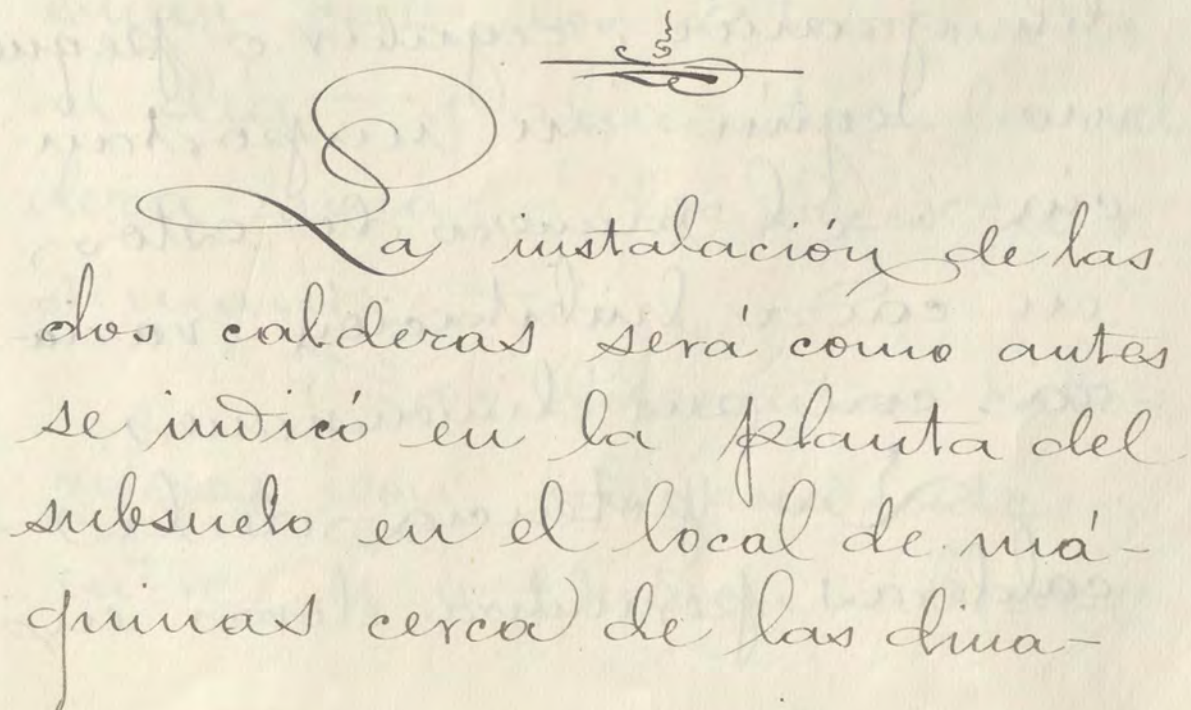 La instalación de las
dos calderas será como antes
se indicó en la planta del
subsuelo en el local de má-
quinas cerca de las dina-